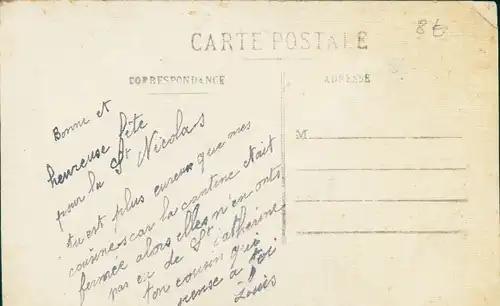 8€
CARTE POSTALE
CORRESPONDANCE
ADRESSE
M
Bonne et
heureuse fête
pour la St Nicolas
tu est plus eureux que mes
cousines car la cantine était
fermée alors elles n'en onts
par eu de St Catherine
ton cousin qui
pense à toi
Louis